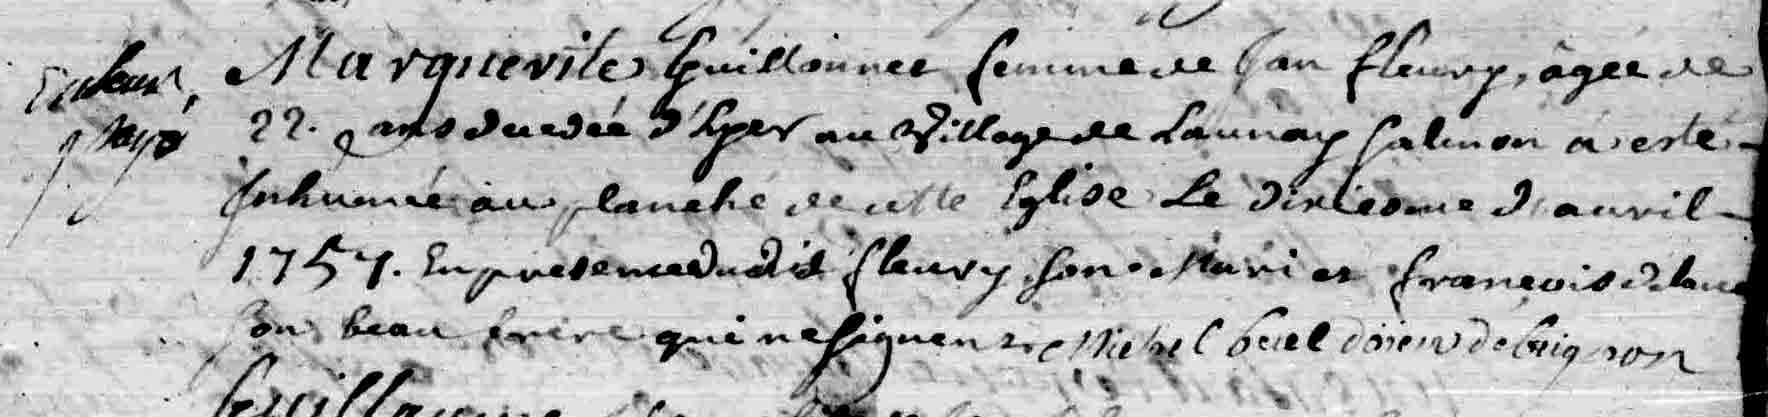 Marguerite Guillonnet femme de Jan fleury, âgée de
22. ans decedée d'hyer au Village de Launay Salmon a esté
Inhumée au planché de cette Eglise Le dixiesme d'avril
1757. En presence dudit fleury son Mari et françois
son beau frere qui ne signent. Michel doien de
Guillaume